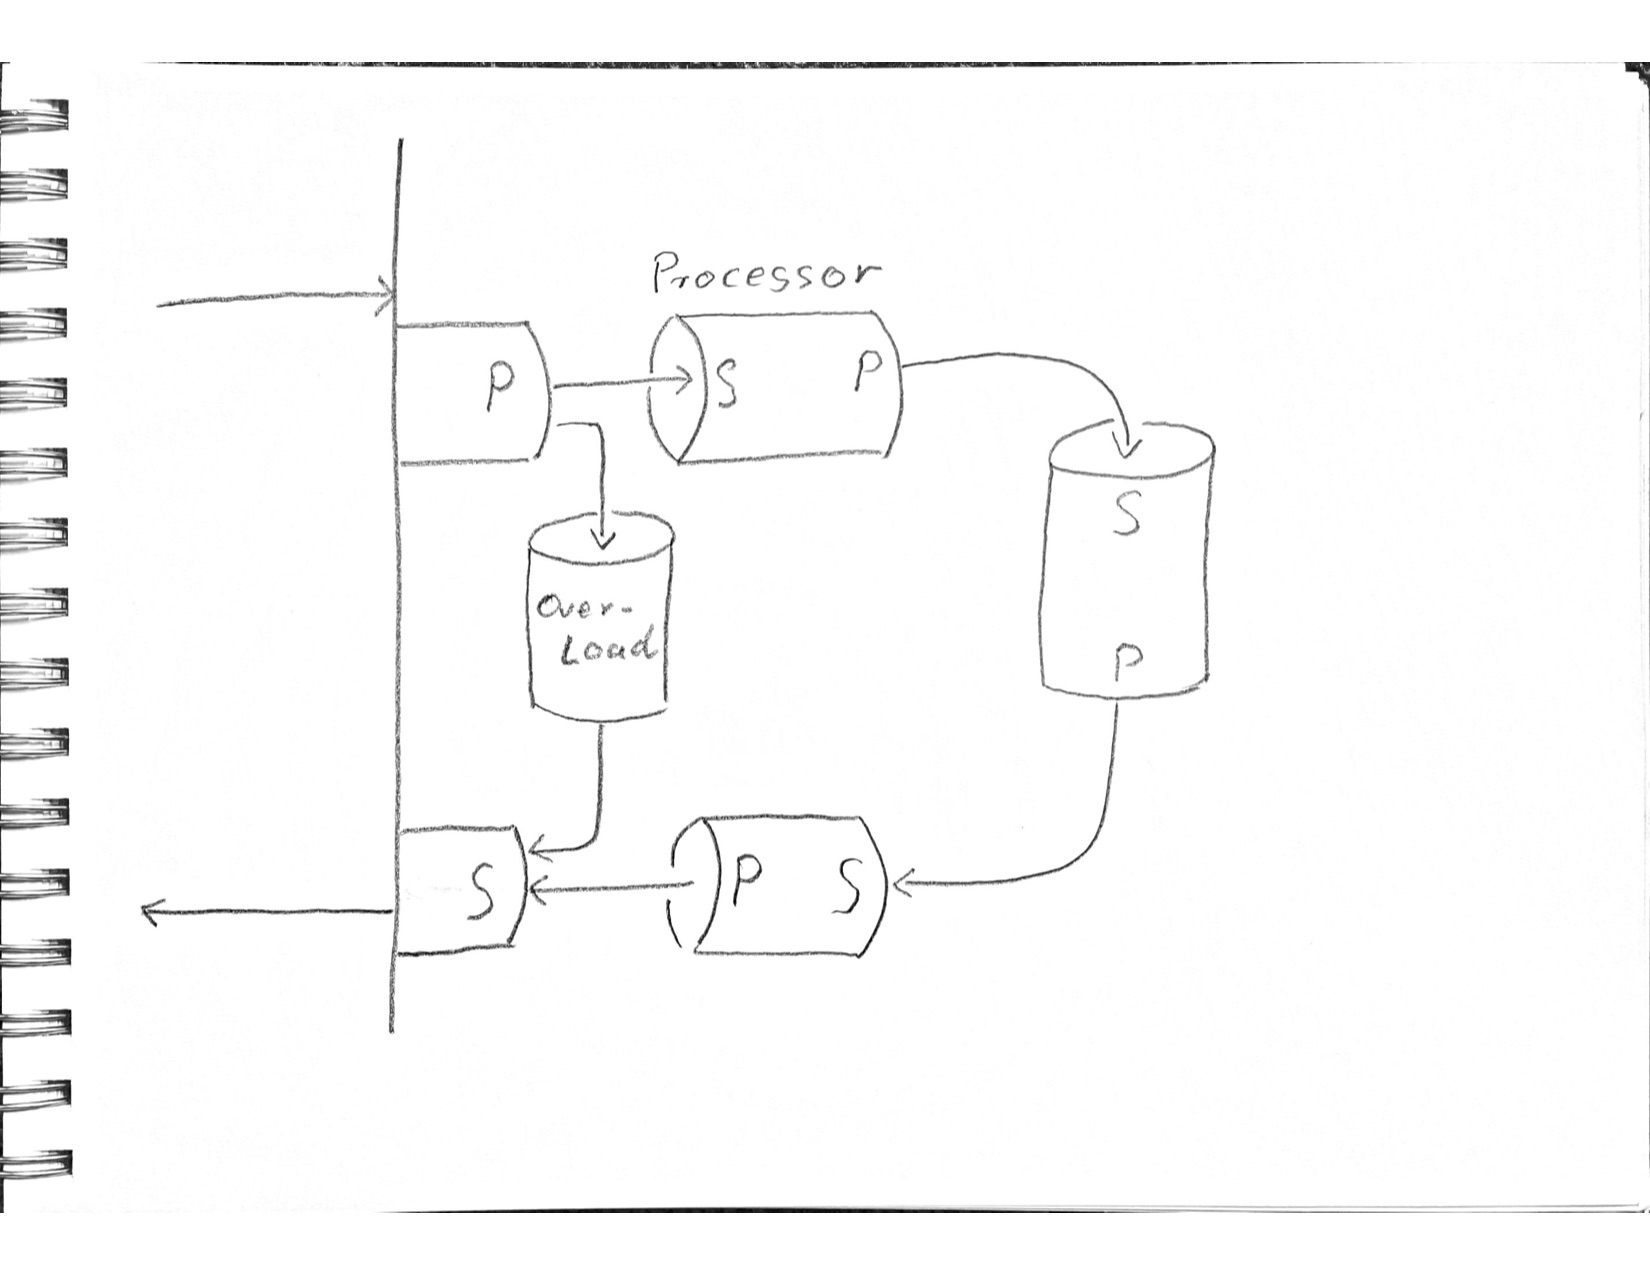 Processor
P
S
P
S
P
Over-
Load
S
P
S